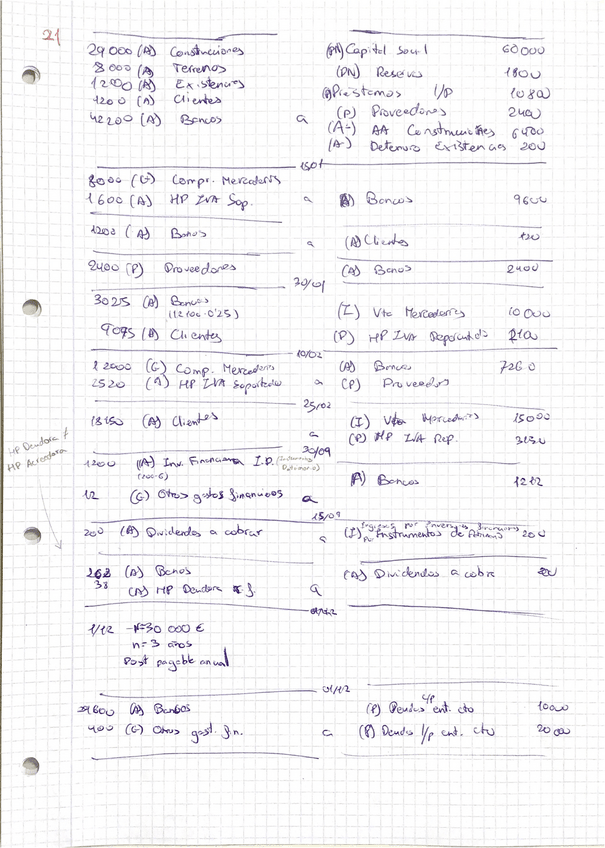 21
29000 (A) Construcciones (PN) Capital social 60000
8000 (A) Terrenos (PN) Reservas 1800
1200 (A) Existencias (P) Préstamos l/p 10800
1200 (A) Clientes (P) Proveedores 2400
42200 (A) Bancos a (A-) AA Construcciones 6400
(A-) Deterioro Existencias 200
15/01
8000 (G) Compr. Mercaderías
1600 (A) HP IVA Sop. a (A) Bancos 9600
1200 (A) Bancos a (A) Clientes
2400 (P) Proveedores (A) Bancos 2400
30/01
3025 (A) Bancos (I) Vta Mercaderías 10000
(12100·0'25)
9075 (A) Clientes (P) HP IVA Repercutido 2100
10/02
12000 (G) Comp. Mercaderías (A) Bancos 7260
2520 (A) HP IVA Soportado a (P) Proveedores
25/02
18150 (A) Clientes a (I) Vta Mercaderías 15000
(P) HP IVA Rep. 3150
30/09
HP Deudora ≠
HP Acreedora
1200 (A) Inv. Financiera l.p. (Instrumentos Patrimonio) (A) Bancos 1212
12 (G) Otros gastos financieros a
15/09
200 (A) Dividendos a cobrar a (I) Ingresos por Inversiones financieras por Instrumentos de Patrimonio 200
162 (A) Bancos (A) Dividendos a cobrar 200
38 (A) HP Deudora a
01/12
1/12 N=30 000 €
n=3 años
Post pagable anual
01/12
29600 (A) Bancos (P) Deudas c/p ent. cto 10000
400 (G) Otros gast. fin. a (P) Deudas l/p ent. cto 20000